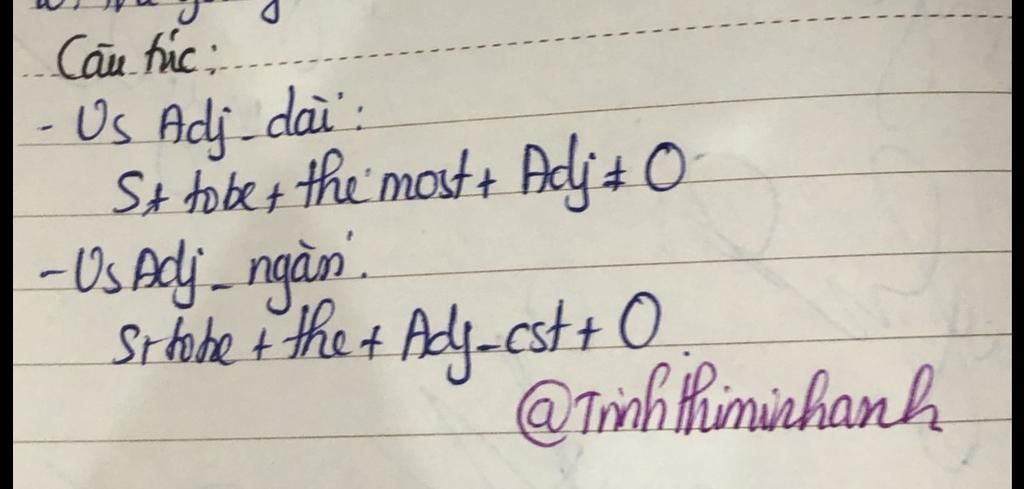 Cấu túc:
- Vs Adj_dài:
S + to be + the most + Adj + O
- Vs Adj_ngắn:
S + to be + the + Adj_est + O
@Trinhthiminhanh